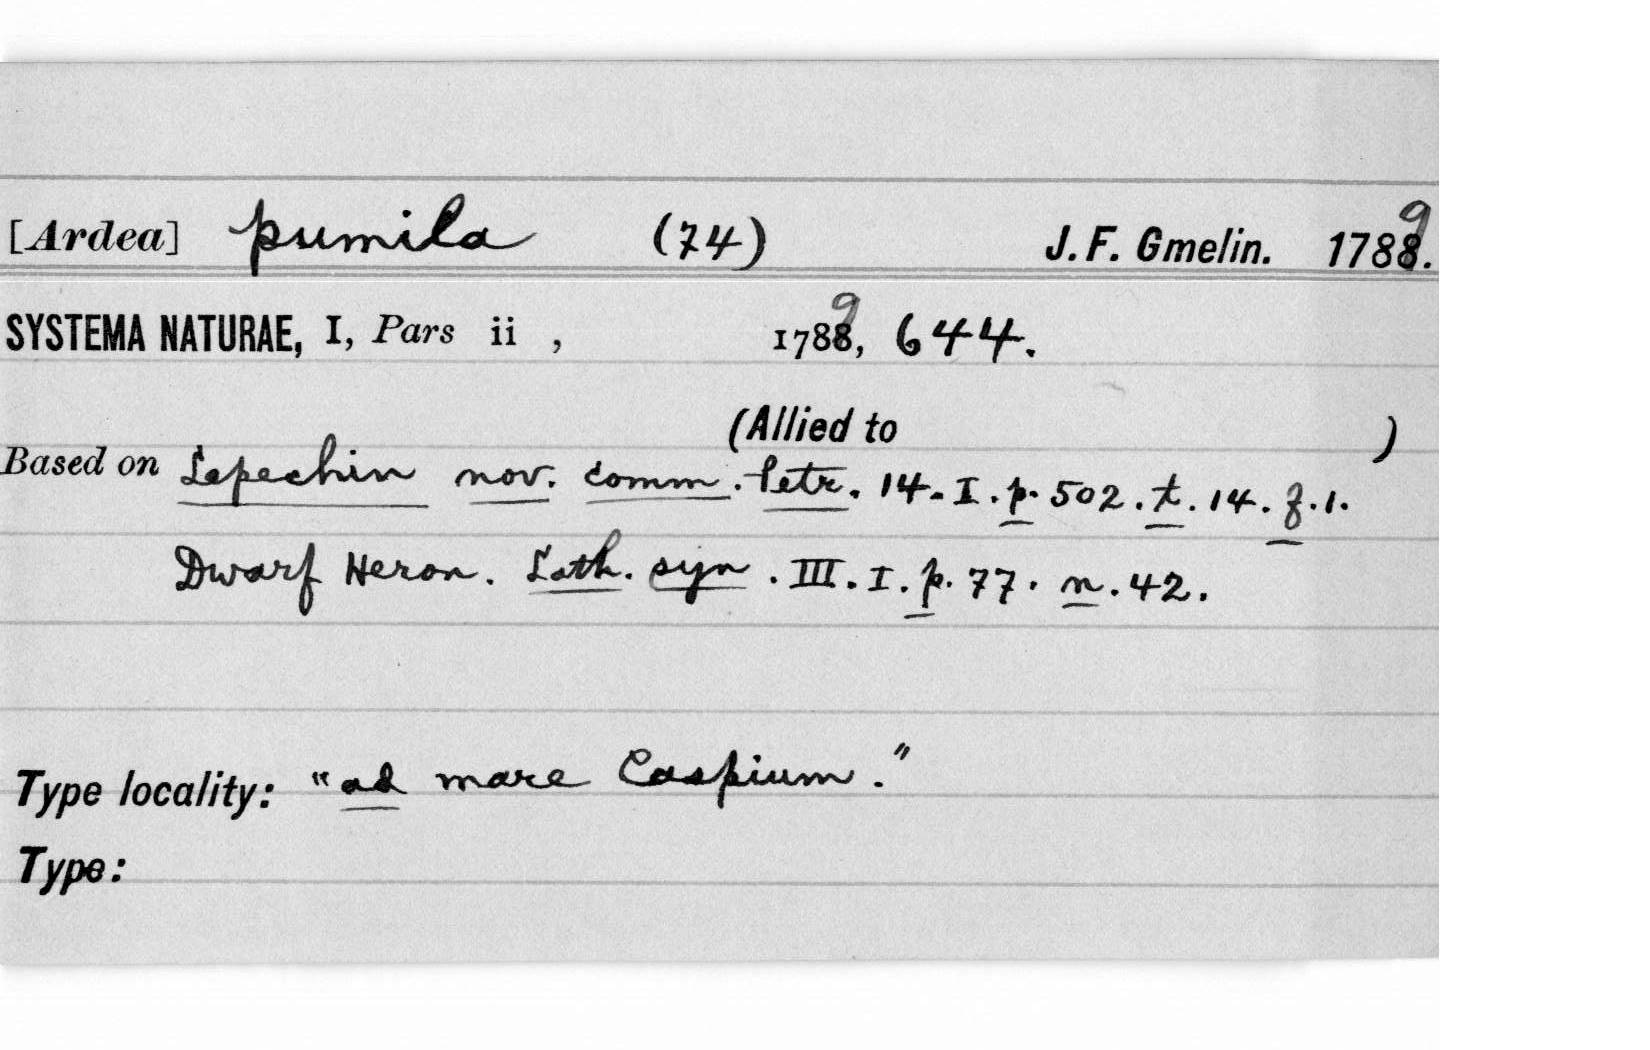 [Ardea] pumila (74) J. F. Gmelin. 1789.
SYSTEMA NATURAE, I, Pars ii , 1789, 644.
(Allied to )
Based on Lepechin nov. comm. Petr. 14. I. p. 502. t. 14. f. 1.
Dwarf Heron. Lath. syn. III. I. p. 77. n. 42.
Type locality: "ad mare Caspium."
Type: